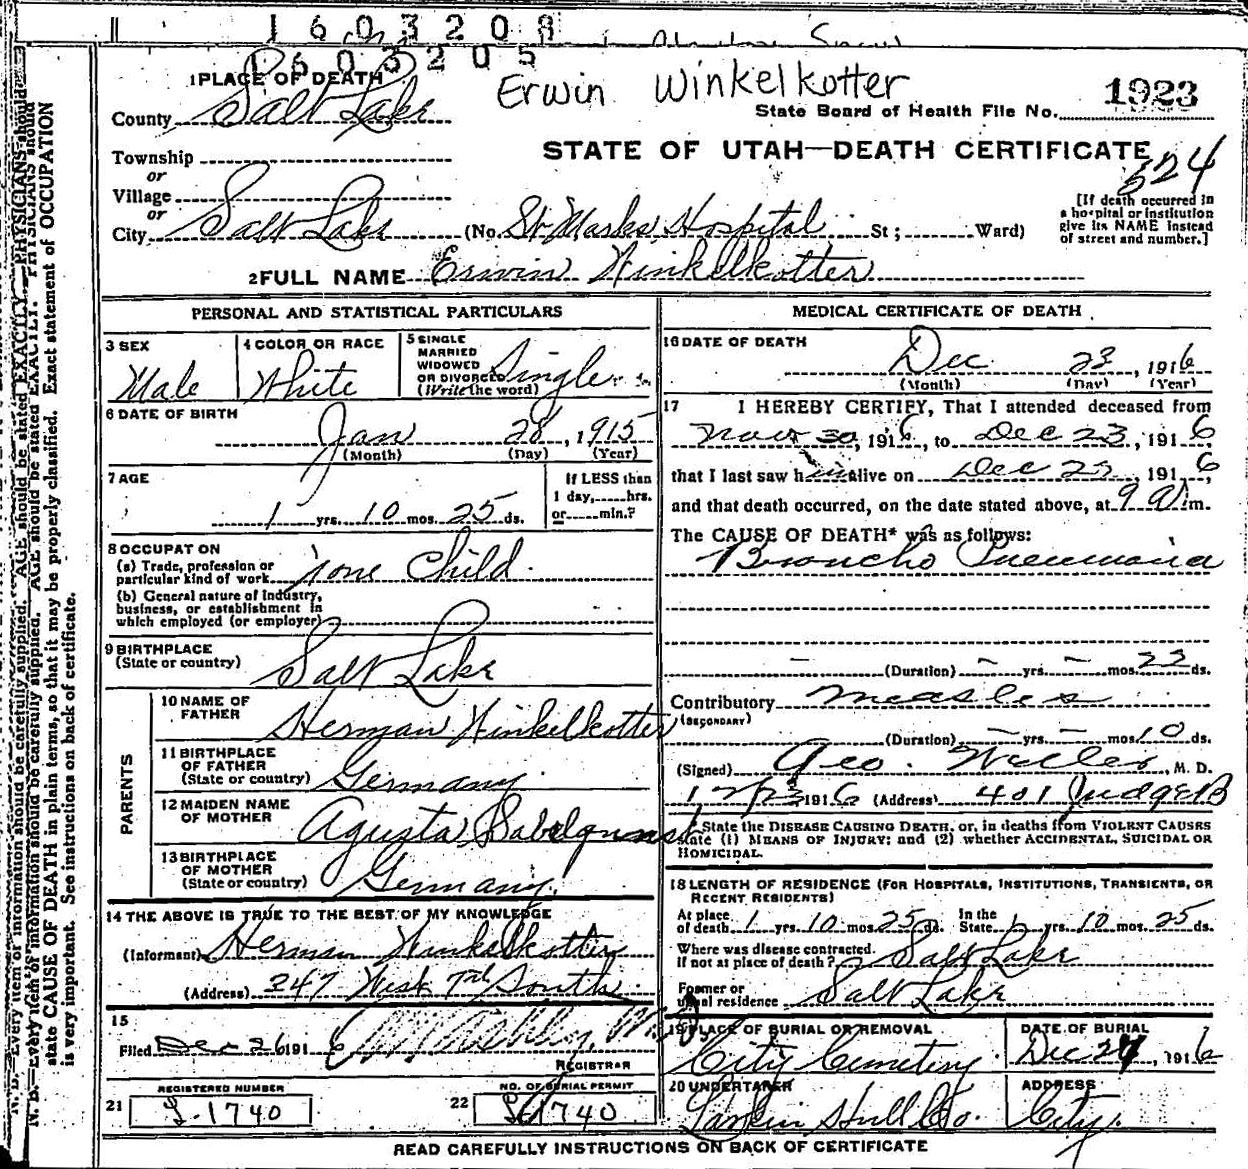 1603208
1603205
Erwin Winkelkotter
1 PLACE OF DEATH
County Salt Lake
State Board of Health File No. 1923
Township
or
STATE OF UTAH—DEATH CERTIFICATE
524
Village
or
City Salt Lake (No. St Marks Hospital St; Ward)
[If death occurred in
a hospital or institution
give its NAME instead
of street and number.]
2 FULL NAME Erwin Winkelkotter
PERSONAL AND STATISTICAL PARTICULARS
3 SEX
Male
4 COLOR OR RACE
White
5 SINGLE
MARRIED
WIDOWED
OR DIVORCED
(Write the word)
Single
6 DATE OF BIRTH
Jan 28, 1915
(Month) (Day) (Year)
7 AGE
1 yrs. 10 mos. 25 ds.
If LESS than
1 day, hrs.
or min.?
8 OCCUPATION
(a) Trade, profession or
particular kind of work none Child
(b) General nature of industry,
business, or establishment in
which employed (or employer)
9 BIRTHPLACE
(State or country) Salt Lake
PARENTS
10 NAME OF
FATHER
Herman Winkelkotter
11 BIRTHPLACE
OF FATHER
(State or country) Germany
12 MAIDEN NAME
OF MOTHER
Agusta
13 BIRTHPLACE
OF MOTHER
(State or country) Germany
14 THE ABOVE IS TRUE TO THE BEST OF MY KNOWLEDGE
(Informant) Herman Winkelkotter
(Address) 247 West 7th South
15
Filed Dec 26 1916
REGISTRAR
REGISTERED NUMBER
21 L-1740
NO. OF BURIAL PERMIT
22 1740
MEDICAL CERTIFICATE OF DEATH
16 DATE OF DEATH
Dec 23, 1916
(Month) (Day) (Year)
17 I HEREBY CERTIFY, That I attended deceased from
Nov 30, 1916, to Dec 23, 1916,
that I last saw him alive on Dec 23, 1916,
and that death occurred, on the date stated above, at 9 A. m.
The CAUSE OF DEATH* was as follows:
Broncho Pneumonia
(Duration) — yrs. — mos. 23 ds.
Contributory measles
(SECONDARY)
(Duration) — yrs. — mos. 10 ds.
(Signed) Geo. , M. D.
1916 (Address) 401 Judge B
State the DISEASE CAUSING DEATH, or, in deaths from VIOLENT CAUSES
state (1) MEANS OF INJURY; and (2) whether ACCIDENTAL, SUICIDAL OR
HOMICIDAL.
18 LENGTH OF RESIDENCE (FOR HOSPITALS, INSTITUTIONS, TRANSIENTS, OR
RECENT RESIDENTS)
At place
of death 1 yrs. 10 mos. 25 ds.
In the
State 1 yrs. 10 mos. 25 ds.
Where was disease contracted.
if not at place of death? Salt Lake
Former or
usual residence Salt Lake
19 PLACE OF BURIAL OR REMOVAL
City Cemetery
DATE OF BURIAL
Dec 24, 1916
20 UNDERTAKER
Larkin Hull Co.
ADDRESS
City.
READ CAREFULLY INSTRUCTIONS ON BACK OF CERTIFICATE
N. B. Every item of information should be carefully supplied. AGE should be stated EXACTLY. PHYSICIANS should
state CAUSE OF DEATH in plain terms, so that it may be properly classified. Exact statement of OCCUPATION
is very important. See instructions on back of certificate.